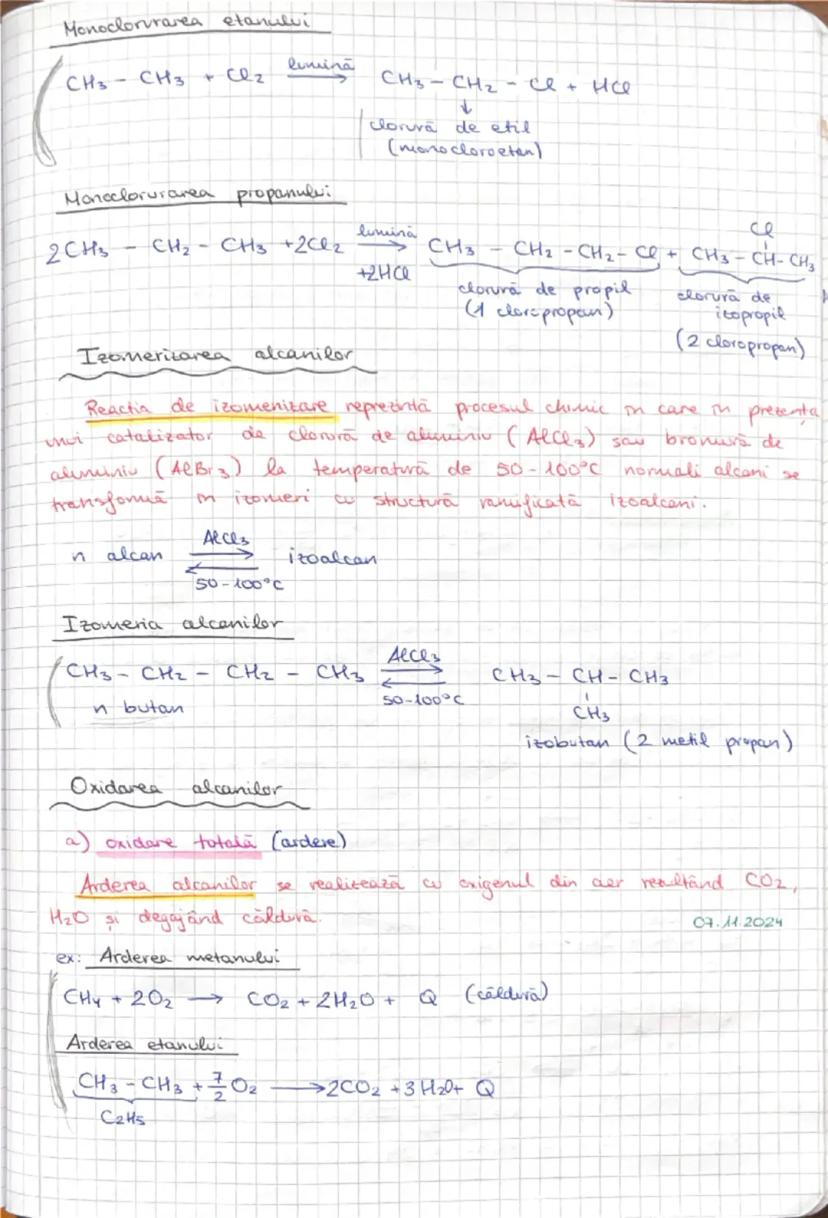 Monoclorurarea etanului
CH3 – CH3 + Cl2 lumină → CH3 – CH2 – Cl + HCl
↓
clorură de etil
(monocloroetan)
Monoclorurarea propanului
2CH3 – CH2 – CH3 + 2Cl2 lumină → +2HCl CH3 – CH2 – CH2 – Cl + CH3 – CH – CH3
Cl
clorură de propil clorură de
(1 cloropropan) izopropil
(2 cloropropan)
Izomerizarea alcanilor
Reacția de izomerizare reprezintă procesul chimic în care în prezența
unui catalizator de clorură de aluminiu (AlCl3) sau bromură de
aluminiu (AlBr3) la temperatură de 50-100°C normali alcani se
transformă în izomeri cu structură ramificată izoalcani.
n alcan AlCl3 ⇄ 50-100°C izoalcan
Izomeria alcanilor
CH3 – CH2 – CH2 – CH3 AlCl3 ⇄ 50-100°C CH3 – CH – CH3
n butan CH3
izobutan (2 metil propan)
Oxidarea alcanilor
a) oxidare totală (ardere)
Arderea alcanilor se realizează cu oxigenul din aer rezultând CO2,
H2O și degajând căldură. 07.11.2024
ex: Arderea metanului
CH4 + 2O2 → CO2 + 2H2O + Q (căldură)
Arderea etanului
CH3 – CH3 + 7/2 O2 → 2CO2 + 3H2O + Q
C2H5